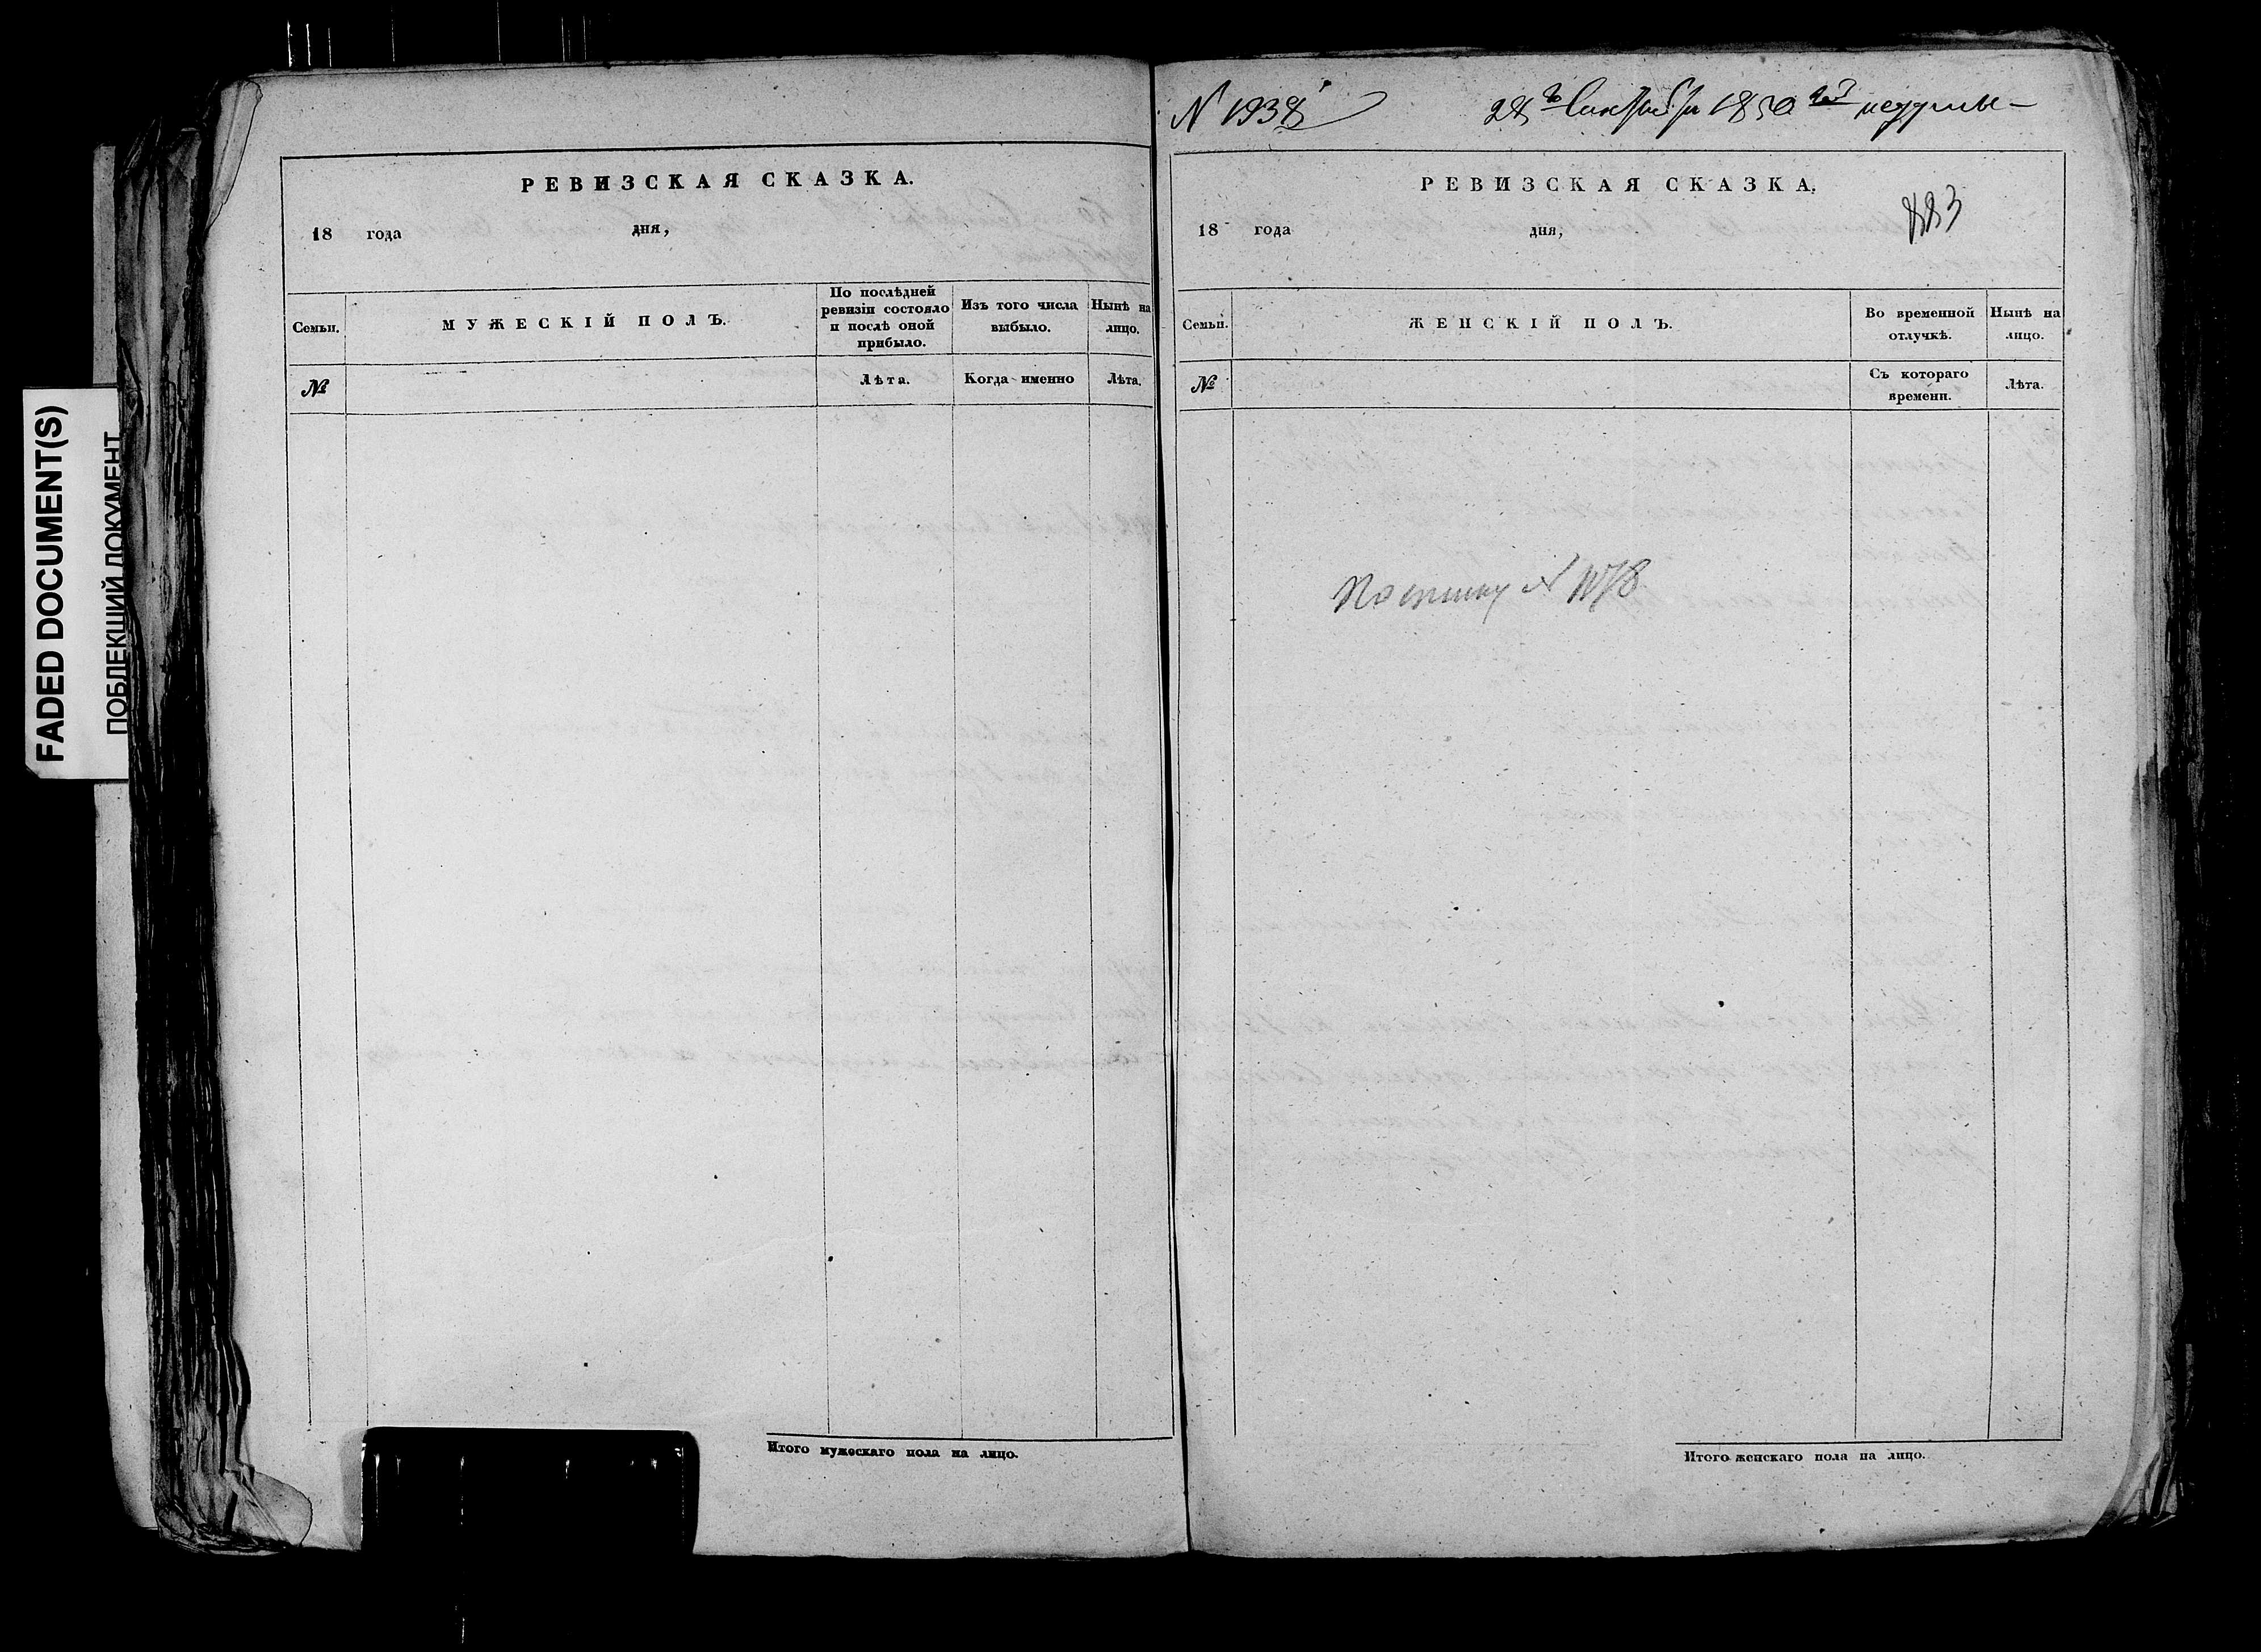 FADED DOCUMENT(S)
ПОБЛЕКШИЙ ДОКУМЕНТ
РЕВИЗСКАЯ СКАЗКА.
18 года дня,
Семьи.
МУЖЕСКІЙ ПОЛЪ.
По послѣдней
ревизіи состояло
и послѣ оной
прибыло.
Изъ того числа
выбыло.
Нынѣ на
лицо.
№
Лѣта.
Когда именно
Лѣта.
Итого мужескаго пола на лицо.
N 1938
28 Сентября 1850
РЕВИЗСКАЯ СКАЗКА.
883
18 года дня,
Семьи.
ЖЕНСКІЙ ПОЛЪ.
Во временной
отлучкѣ.
Нынѣ на
лицо.
№
Съ котораго
времени.
Лѣта.
По списку N
Итого женскаго пола на лицо.